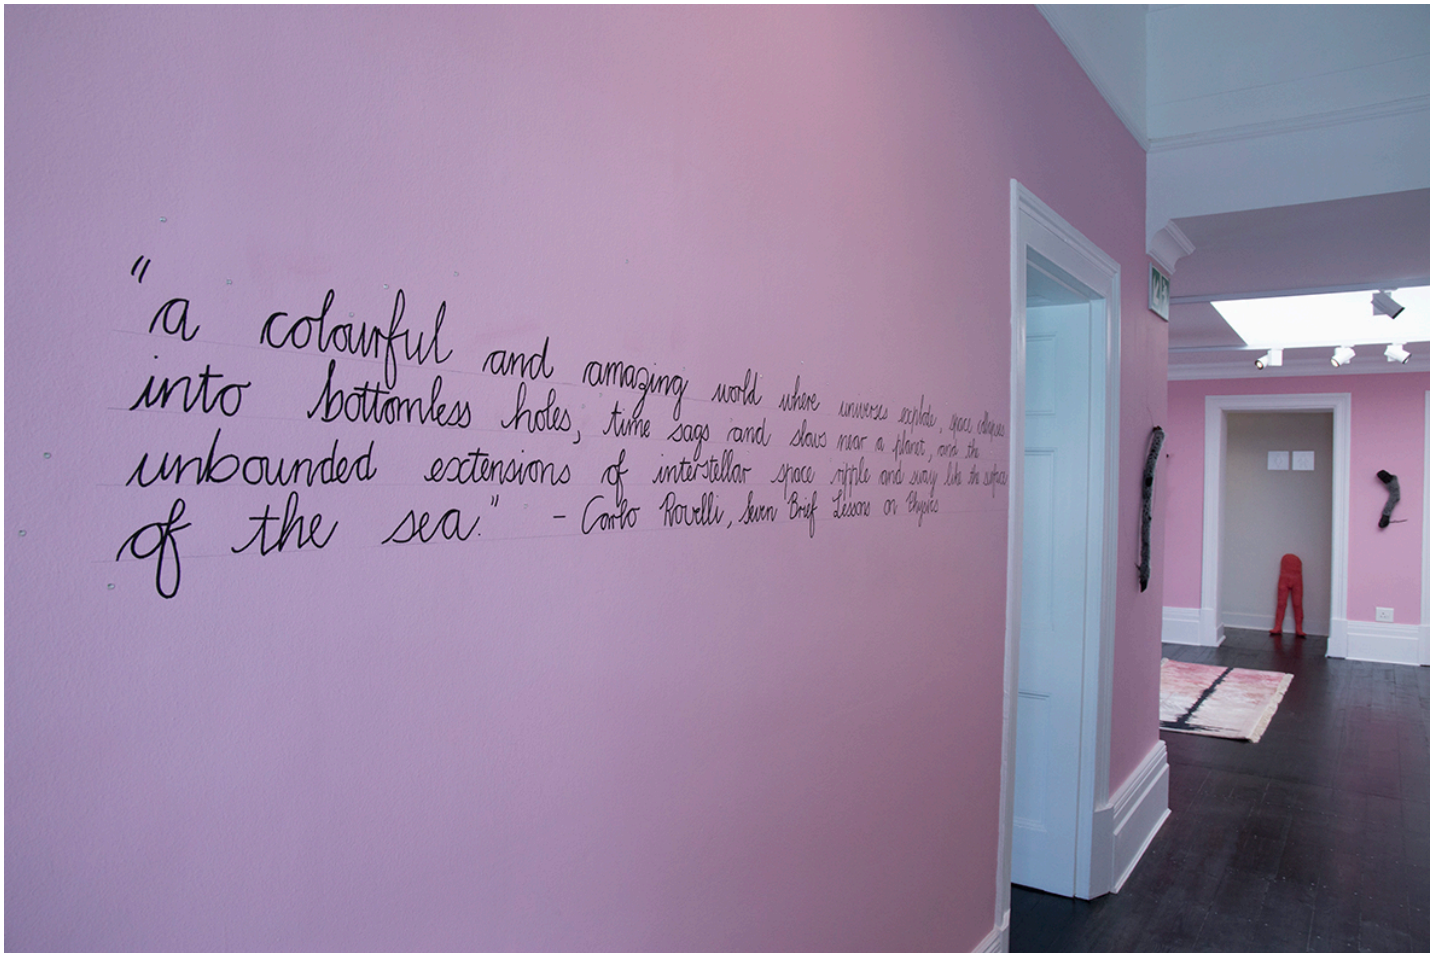 "a colourful and amazing world where universes explode, space collapses
into bottomless holes, time sags and slows near a planet, and the
unbounded extensions of interstellar space ripple and sway like the surface
of the sea." - Carlo Rovelli, Seven Brief Lessons on Physics